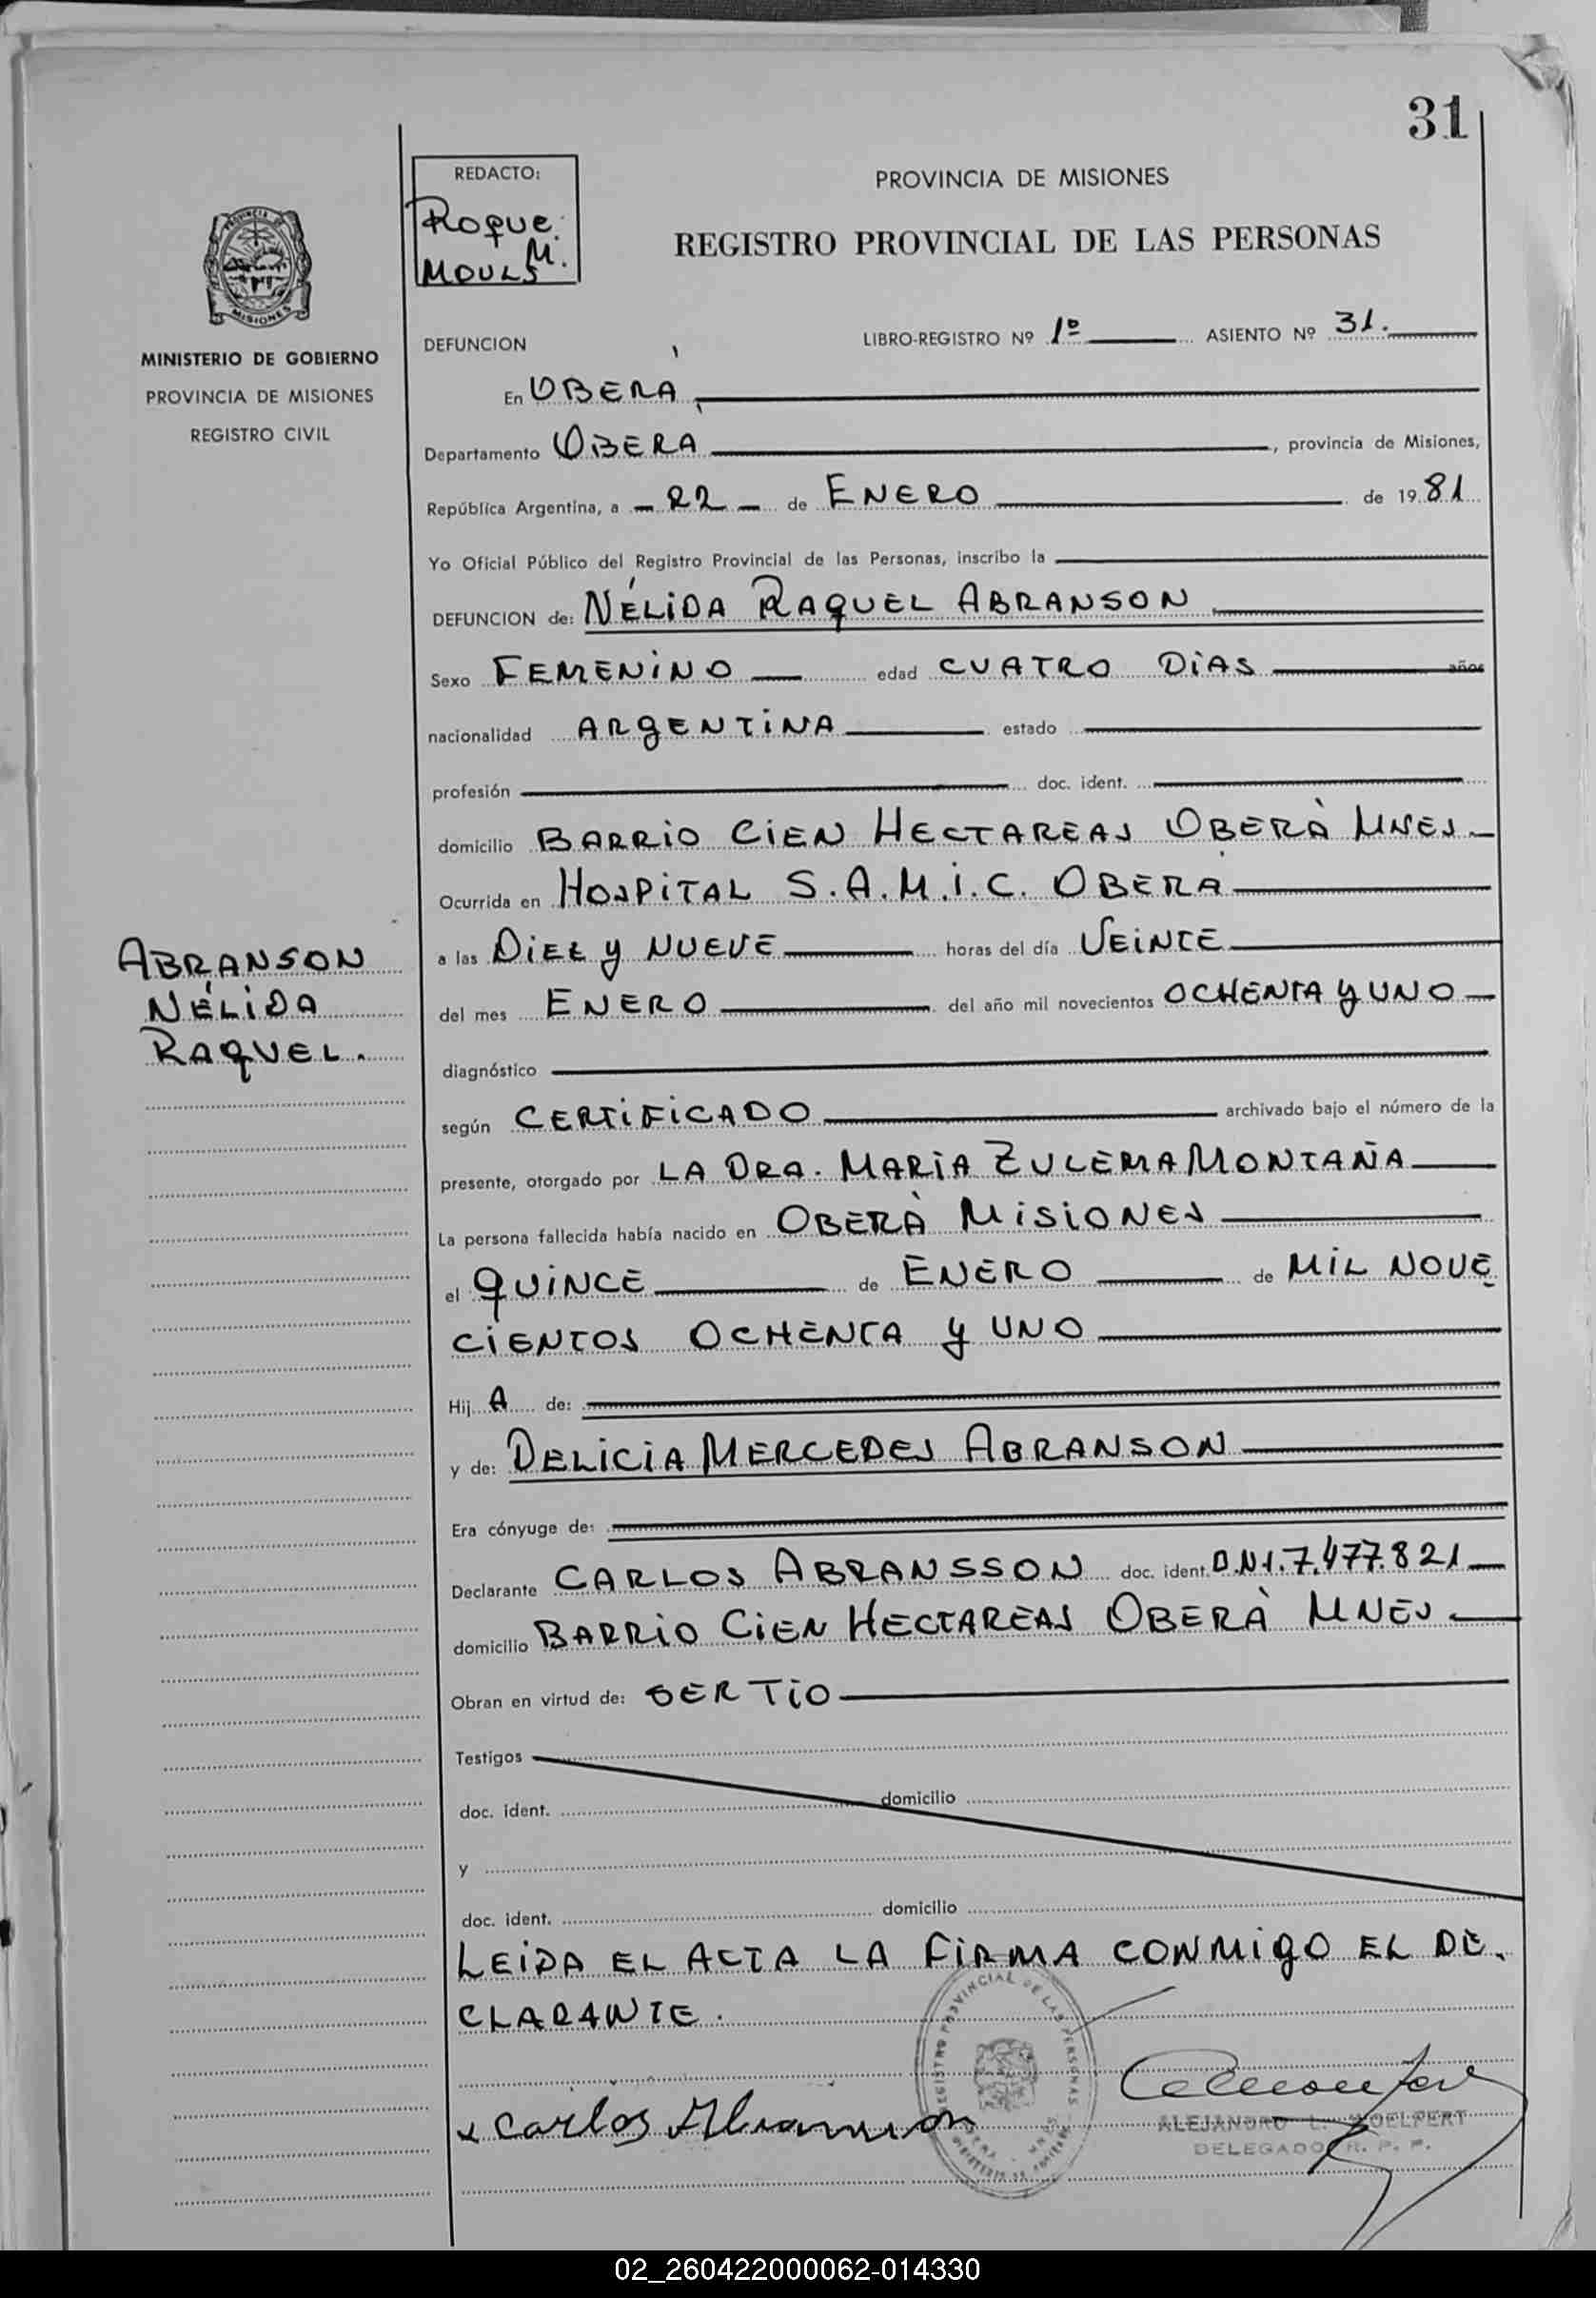 31
REDACTO:
Roque.
M.
MOULS
PROVINCIA DE MISIONES
REGISTRO PROVINCIAL DE LAS PERSONAS
PROVINCIA DE
MISIONES
MINISTERIO DE GOBIERNO
PROVINCIA DE MISIONES
REGISTRO CIVIL
DEFUNCION LIBRO-REGISTRO Nº 1º ASIENTO Nº 31.
En OBERÁ,
Departamento OBERÁ, provincia de Misiones,
República Argentina, a 22 de ENERO de 1981
Yo Oficial Público del Registro Provincial de las Personas, inscribo la
DEFUNCION de: NÉLIDA RAQUEL ABRANSON
Sexo FEMENINO edad CUATRO DIAS años
nacionalidad ARGENTINA estado
profesión doc. ident.
domicilio BARRIO CIEN HECTAREAS OBERÀ MNES.
Ocurrida en HOSPITAL S.A.M.I.C. OBERÁ
a las DIEZ y NUEVE horas del día VEINTE
del mes ENERO del año mil novecientos OCHENTA y UNO
diagnóstico
según CERTIFICADO archivado bajo el número de la
presente, otorgado por LA DRA. MARIA ZULEMA MONTAÑA
La persona fallecida había nacido en OBERÀ MISIONES
el QUINCE de ENERO de MIL NOVE
CIENTOS OCHENTA y UNO
Hij A de:
y de: DELICIA MERCEDES ABRANSON
Era cónyuge de:
Declarante CARLOS ABRANSSON doc. ident. D.N.I. 7.477.821
domicilio BARRIO CIEN HECTAREAS OBERÀ MNES
Obran en virtud de: SER TIO
Testigos
doc. ident. domicilio
y
doc. ident. domicilio
LEIDA EL ACTA LA FIRMA CONMIGO EL DE.
CLARANTE.
ABRANSON
NÉLIDA
RAQUEL.
REGISTRO PROVINCIAL DE LAS PERSONAS
x Carlos Abransson
DELEGADO R. P. P.
02_260422000062-014330